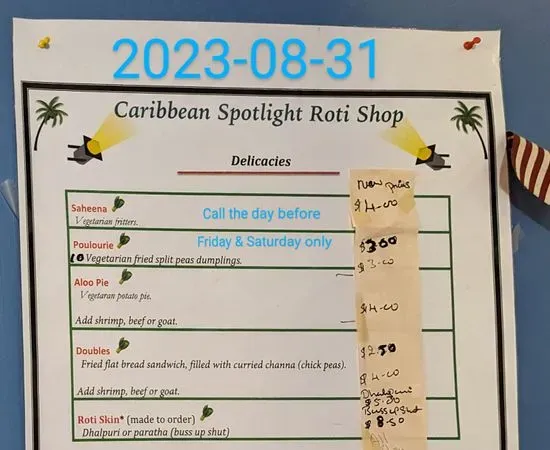 2023-08-31
Caribbean Spotlight Roti Shop
Delicacies
New prices
Saheena
$4.00
Vegetarian fritters.
Call the day before
Poulourie
Friday & Saturday only
$3.00
10 Vegetarian fried split peas dumplings.
$3.00
Aloo Pie
Vegetaran potato pie.
$4.00
Add shrimp, beef or goat.
Doubles
$2.50
Fried flat bread sandwich, filled with curried channa (chick peas).
$4.00
Add shrimp, beef or goat.
Dhalpuri
$5.00
Roti Skin* (made to order)
Buss up shut
$8.50
Dhalpuri or paratha (buss up shut)